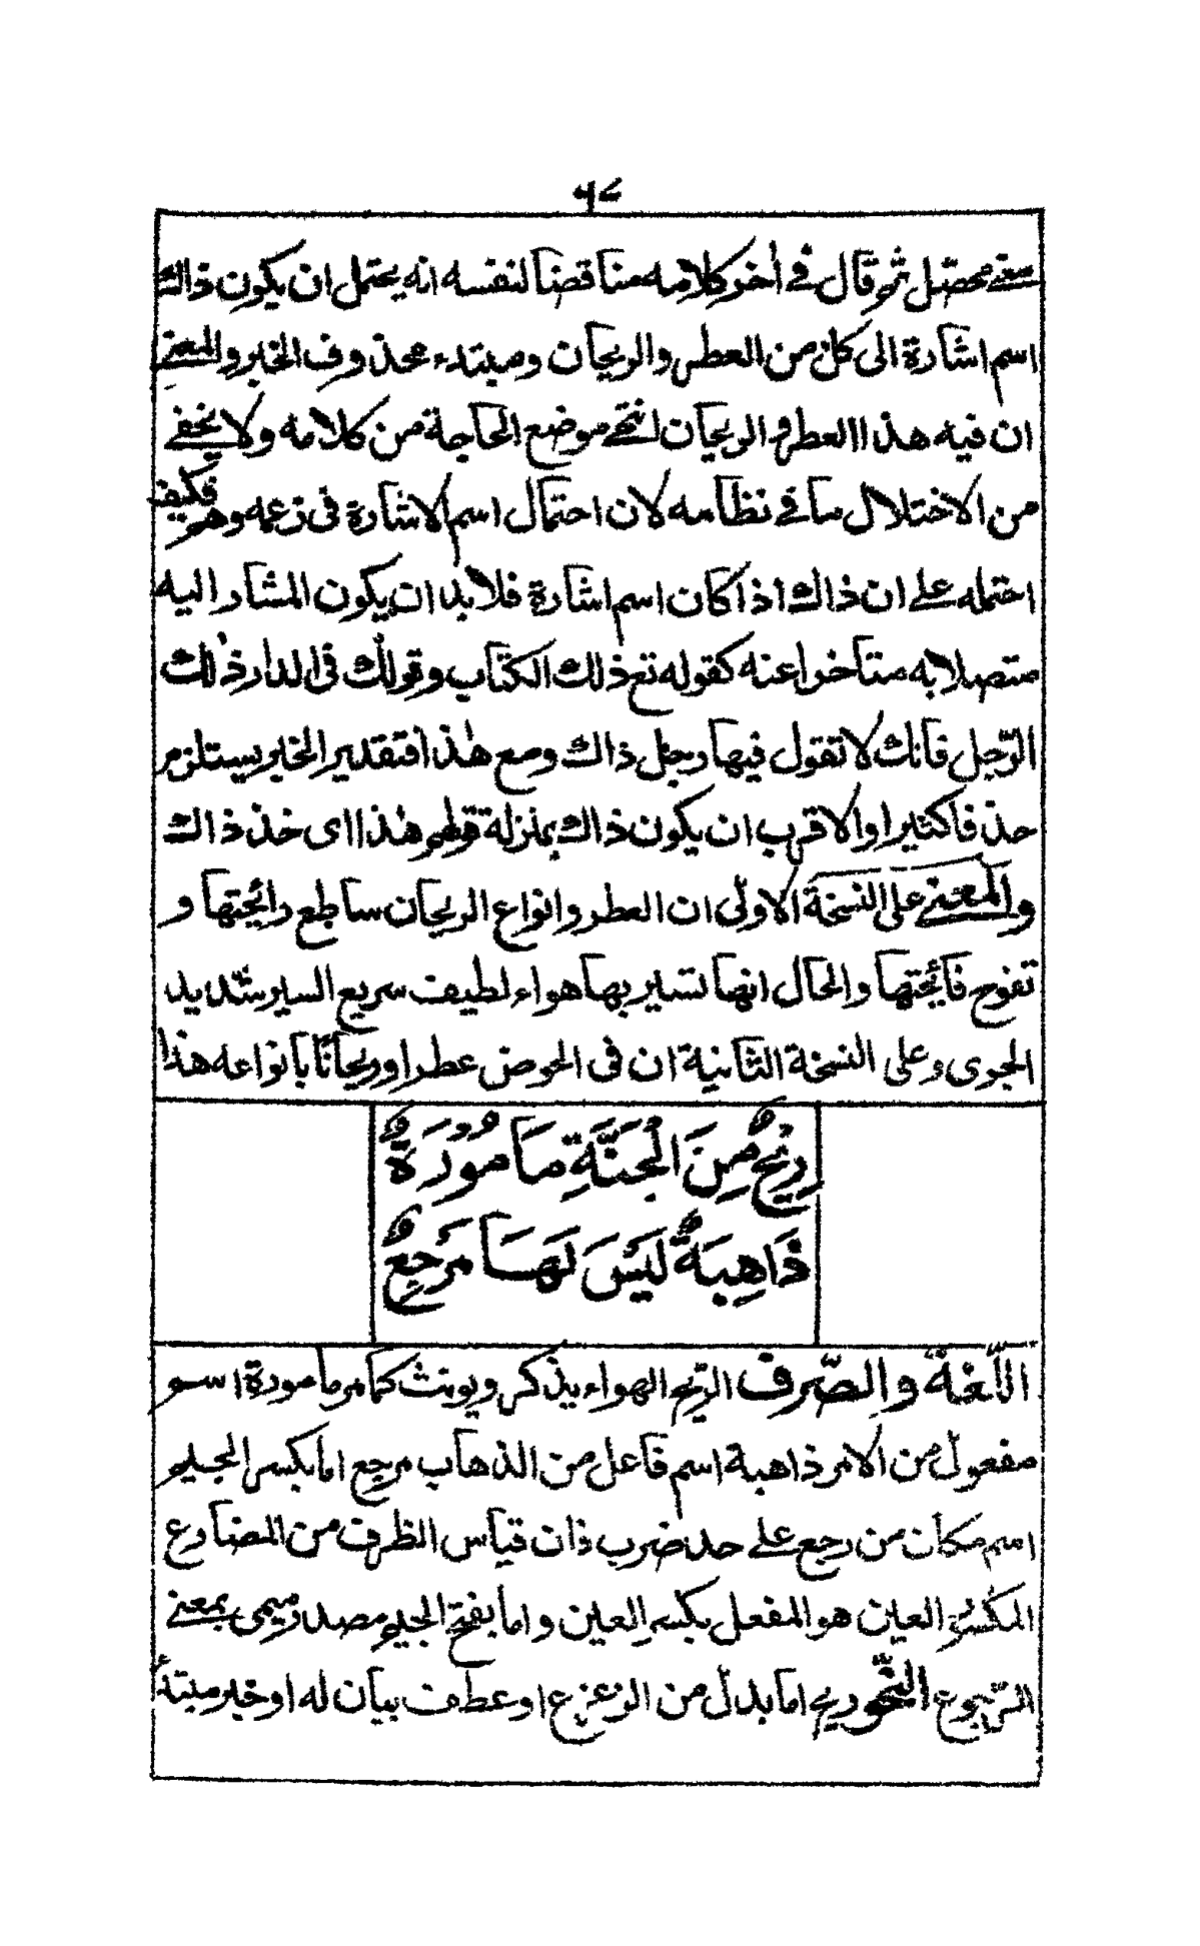 ٩٤
معنى محصّل ثم قال فى اخر كلامه مناقضا لنفسه انه يحتمل ان يكون ذالك
اسم اشارة الى كل من العطر والريحان ومبتدء محذوف الخبر والمعنى
ان فيه هذا العطر والريحان انتهى موضع الحاجة من كلامه ولا يخفى
من الاختلال ما فى نظامه لان احتمال اسم الاشارة فى زعمه وهو فكيف
احتمله على ان ذالك اذا كان اسم اشارة فلا بد ان يكون المشار اليه
متصلا به متأخرا عنه كقوله تع ذلك الكتاب وقولك فى الدار ذلك
الرّجل فانك لا تقول فيها رجل ذاك ومع هٰذا فتقدير الخبر يستلزم
حذفا كثيرا والاقرب ان يكون ذاك بمنزلة قولهم هٰذا اى خذ ذاك
والمعنى على النسخة الاولى ان العطر وانواع الريحان ساطع رائحتها و
تفوح فائحتها والحال انها تسير بها هواء لطيف سريع السير شديد
الجرى وعلى النسخة الثانية ان فى الحوض عطرا وريحانًا بأنواعه هذا
رِيْحٌ مِنَ الْجَنَّةِ مَامُوْرَةٌ
ذَاهِبَةٌ لَيْسَ لَهَا مَرْجِعٌ
اللّغة والصّرف الريح الهواء يذكر ويونث كما مر مامورة اسم
مفعول من الامر ذاهبة اسم فاعل من الذهاب مرجع اما بكسر الجيم
اسم مكان من رجع على حد ضرب فان قياس الظرف من المضارع
المكسور العين هو المفعل بكسر العين واما بفتح الجيم مصدر ميمى بمعنى
الرّجوع النّحو ريح اما بدل من الزعزع او عطف بيان له او خبر مبتدأ